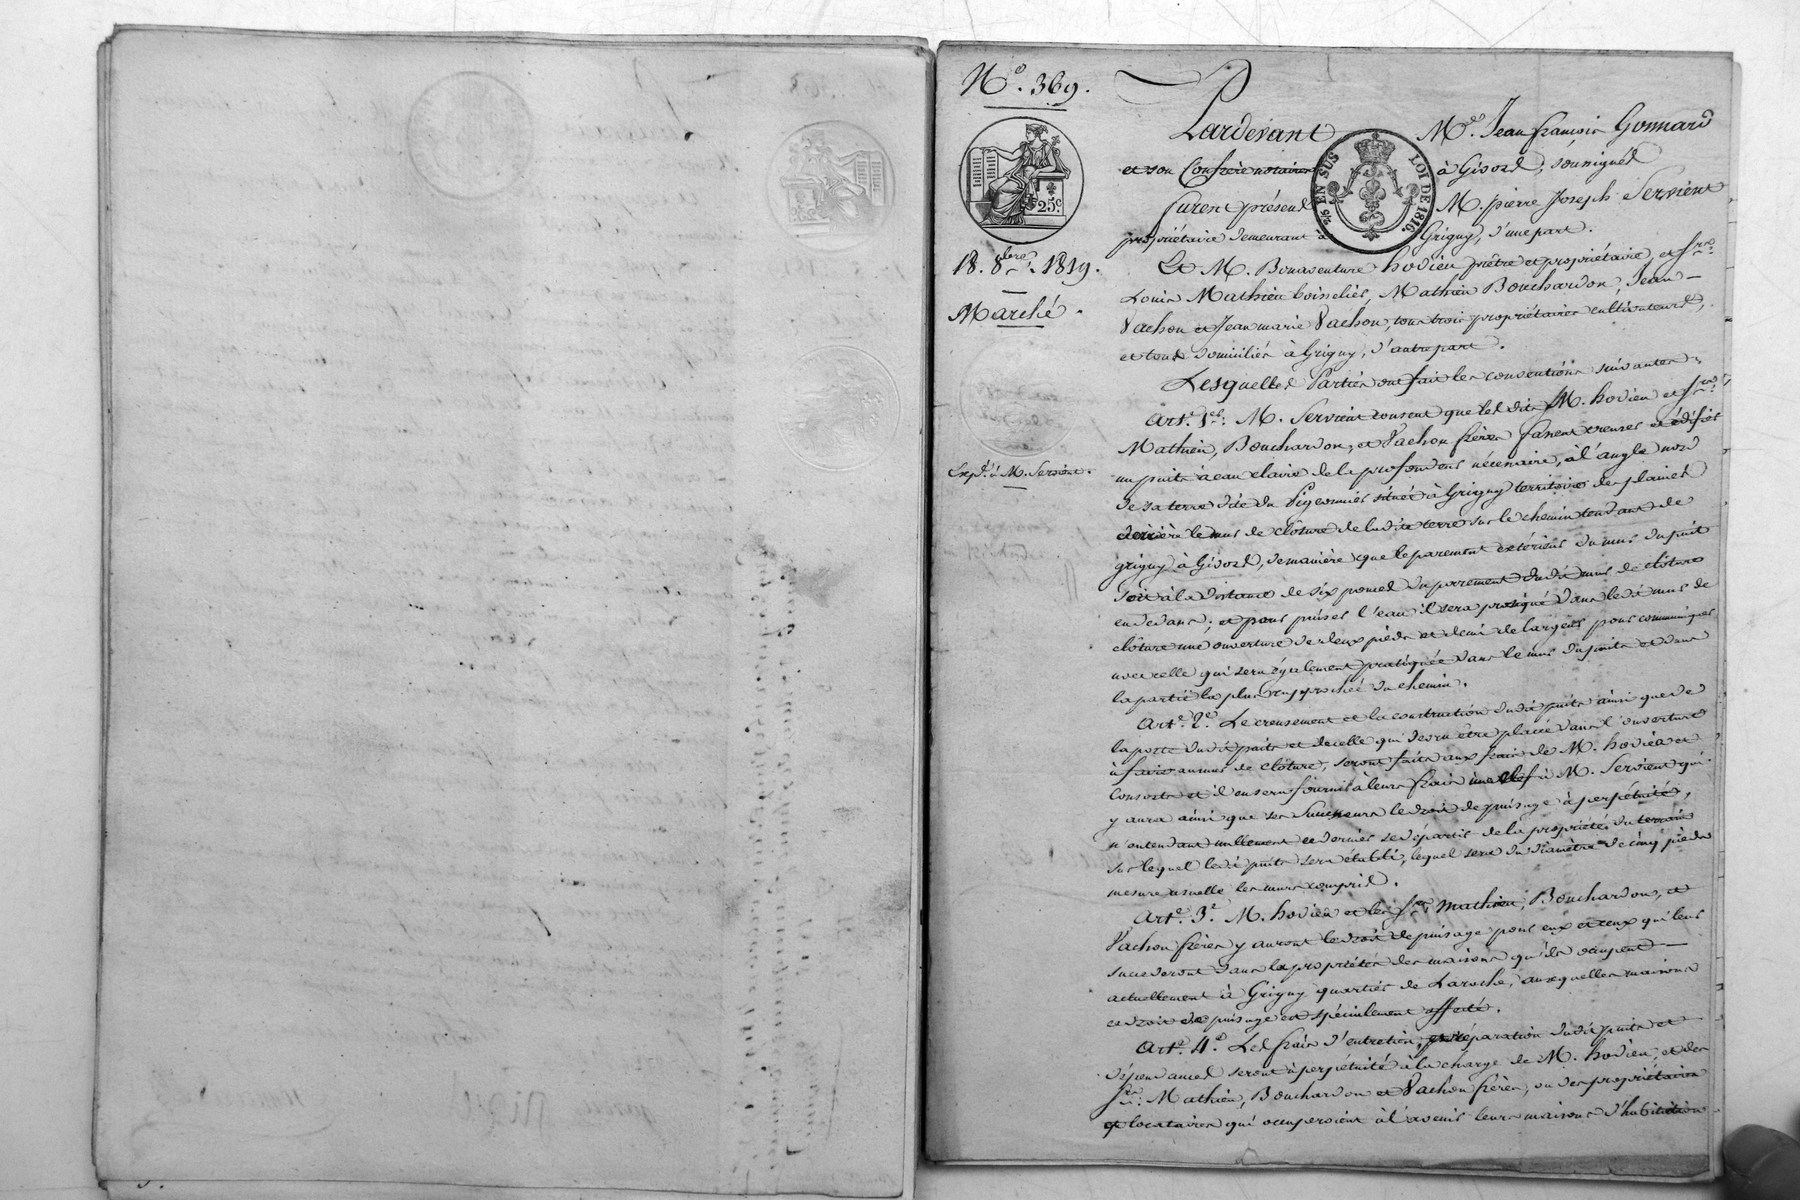 N.º 369.
25.c
18. 8bre. 1819.
Marché.
Exp.é à M. Servient.
Pardevant M.e Jean françois Gonnard
et son Confrère notaires à Givors, soussignés
EN SUS LOI DE 1816.
furent présens M. pierre Joseph Servient
propriétaire demeurant à Grigny, d'une part.
Et M. Bonaventure hodieu prêtre et propriétaire, et Srs.
Louis Mathieu boisselier, Mathieu Bouchardon, Jean
Vachon et Jean marie Vachon, tous trois propriétaires cultivateurs,
et tous domiciliés à Grigny, d'autre part.
Lesquelles Parties ont fait les conventions suivantes;
Art. 1er. M. Servient consent que les dits M. hodieu et Srs.
Mathieu, Bouchardon, et Vachon frères fassent creuser et édifier
un puits à eau claire de la profondeur nécessaire, à l'angle nord
de sa terre dite du Pigeonnier située à Grigny territoire des plaines
derrière le mur de clôture de ladite terre sur le chemin tendant de
grigny à Givors, de manière que le parement extérieur du mur du puit
soit à la distance de six pouces du parement dudit mur de clôture
en dedans; et pour puiser l'eau il sera pratiqué dans ledit mur de
clôture une ouverture de deux pieds et demi de largeur pour communiquer
avec celle qui sera également pratiquée dans le mur du puits et dans
la partie la plus rapprochée du chemin.
Art.e 2.e Le creusement et la construction dudit puits ainsi que de
la porte dudit puits et de celle qui devra être placée dans l'ouverture
à faire au mur de clôture, seront faits aux frais de M. hodieu et
Consorts et il en sera fourni à leurs frais une clef à M. Servient qui
y aura ainsi que ses Successeurs le droit de puisage à perpétuité,
n'entendant nullement ce dernier se départir de la propriété du terrain
sur lequel ledit puits sera établi, lequel sera du diamètre de cinq pieds
mesure usuelle les murs compris.
Art.e 3.e M. hodieu et les Srs Mathieu, Bouchardon, et
Vachon frères y auront le droit de puisage pour eux et ceux qui leur
succederont dans la propriété des maisons qu'ils occupent
actuellement à Grigny quartier de Laroche, auxquelles maisons
ce droit de puisage est spécialement affecté.
Art.e 4.e Les frais d'entretien, réparation dudit puits et
dépendances seront à perpétuité à la charge de M. hodieu, et des
Srs. Mathieu, Bouchardon et Vachon frères, ou des propriétaires
et locataires qui occuperoient à l'avenir leurs maisons d'habitation